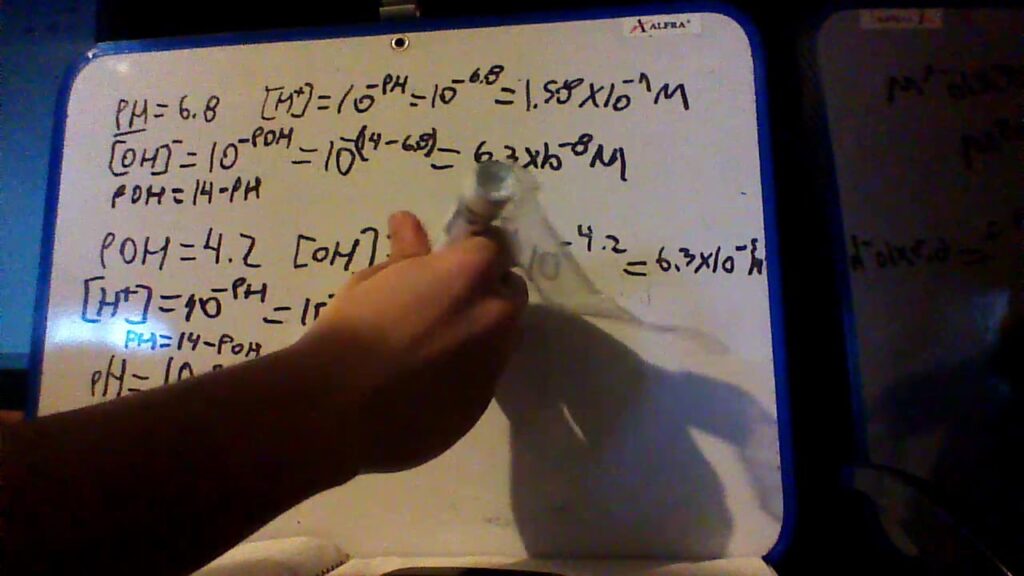 ALFRA
PH = 6.8 [H⁺] = 10^-PH = 10^-6.8 = 1.58 X10^-7 M
[OH]⁻ = 10^-POH = 10^-(14-6.8) = 6.3 x10^-8 M
POH = 14-PH
POH = 4.2 [OH] 10^-4.2 = 6.3 X10^-5 M
[H⁺] = 10^-PH = 10
PH = 14-POH
pH = 10